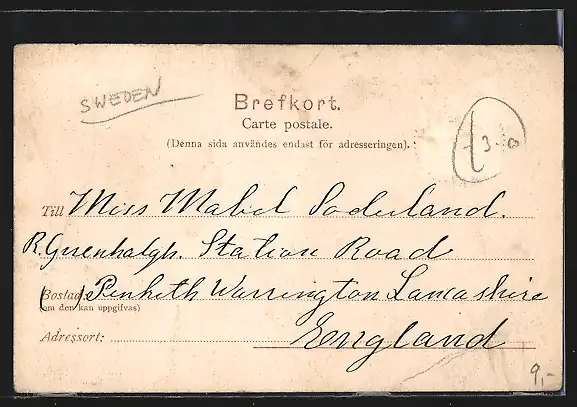 SWEDEN
Brefkort.
Carte postale.
(Denna sida användes endast för adresseringen).
3
Till Miss Mabel Soderland.
R. Greenhalgh. Station Road
Bostad: Penketh Warrington Lancashire
(om den kan uppgifvas)
Adressort: England
9,-